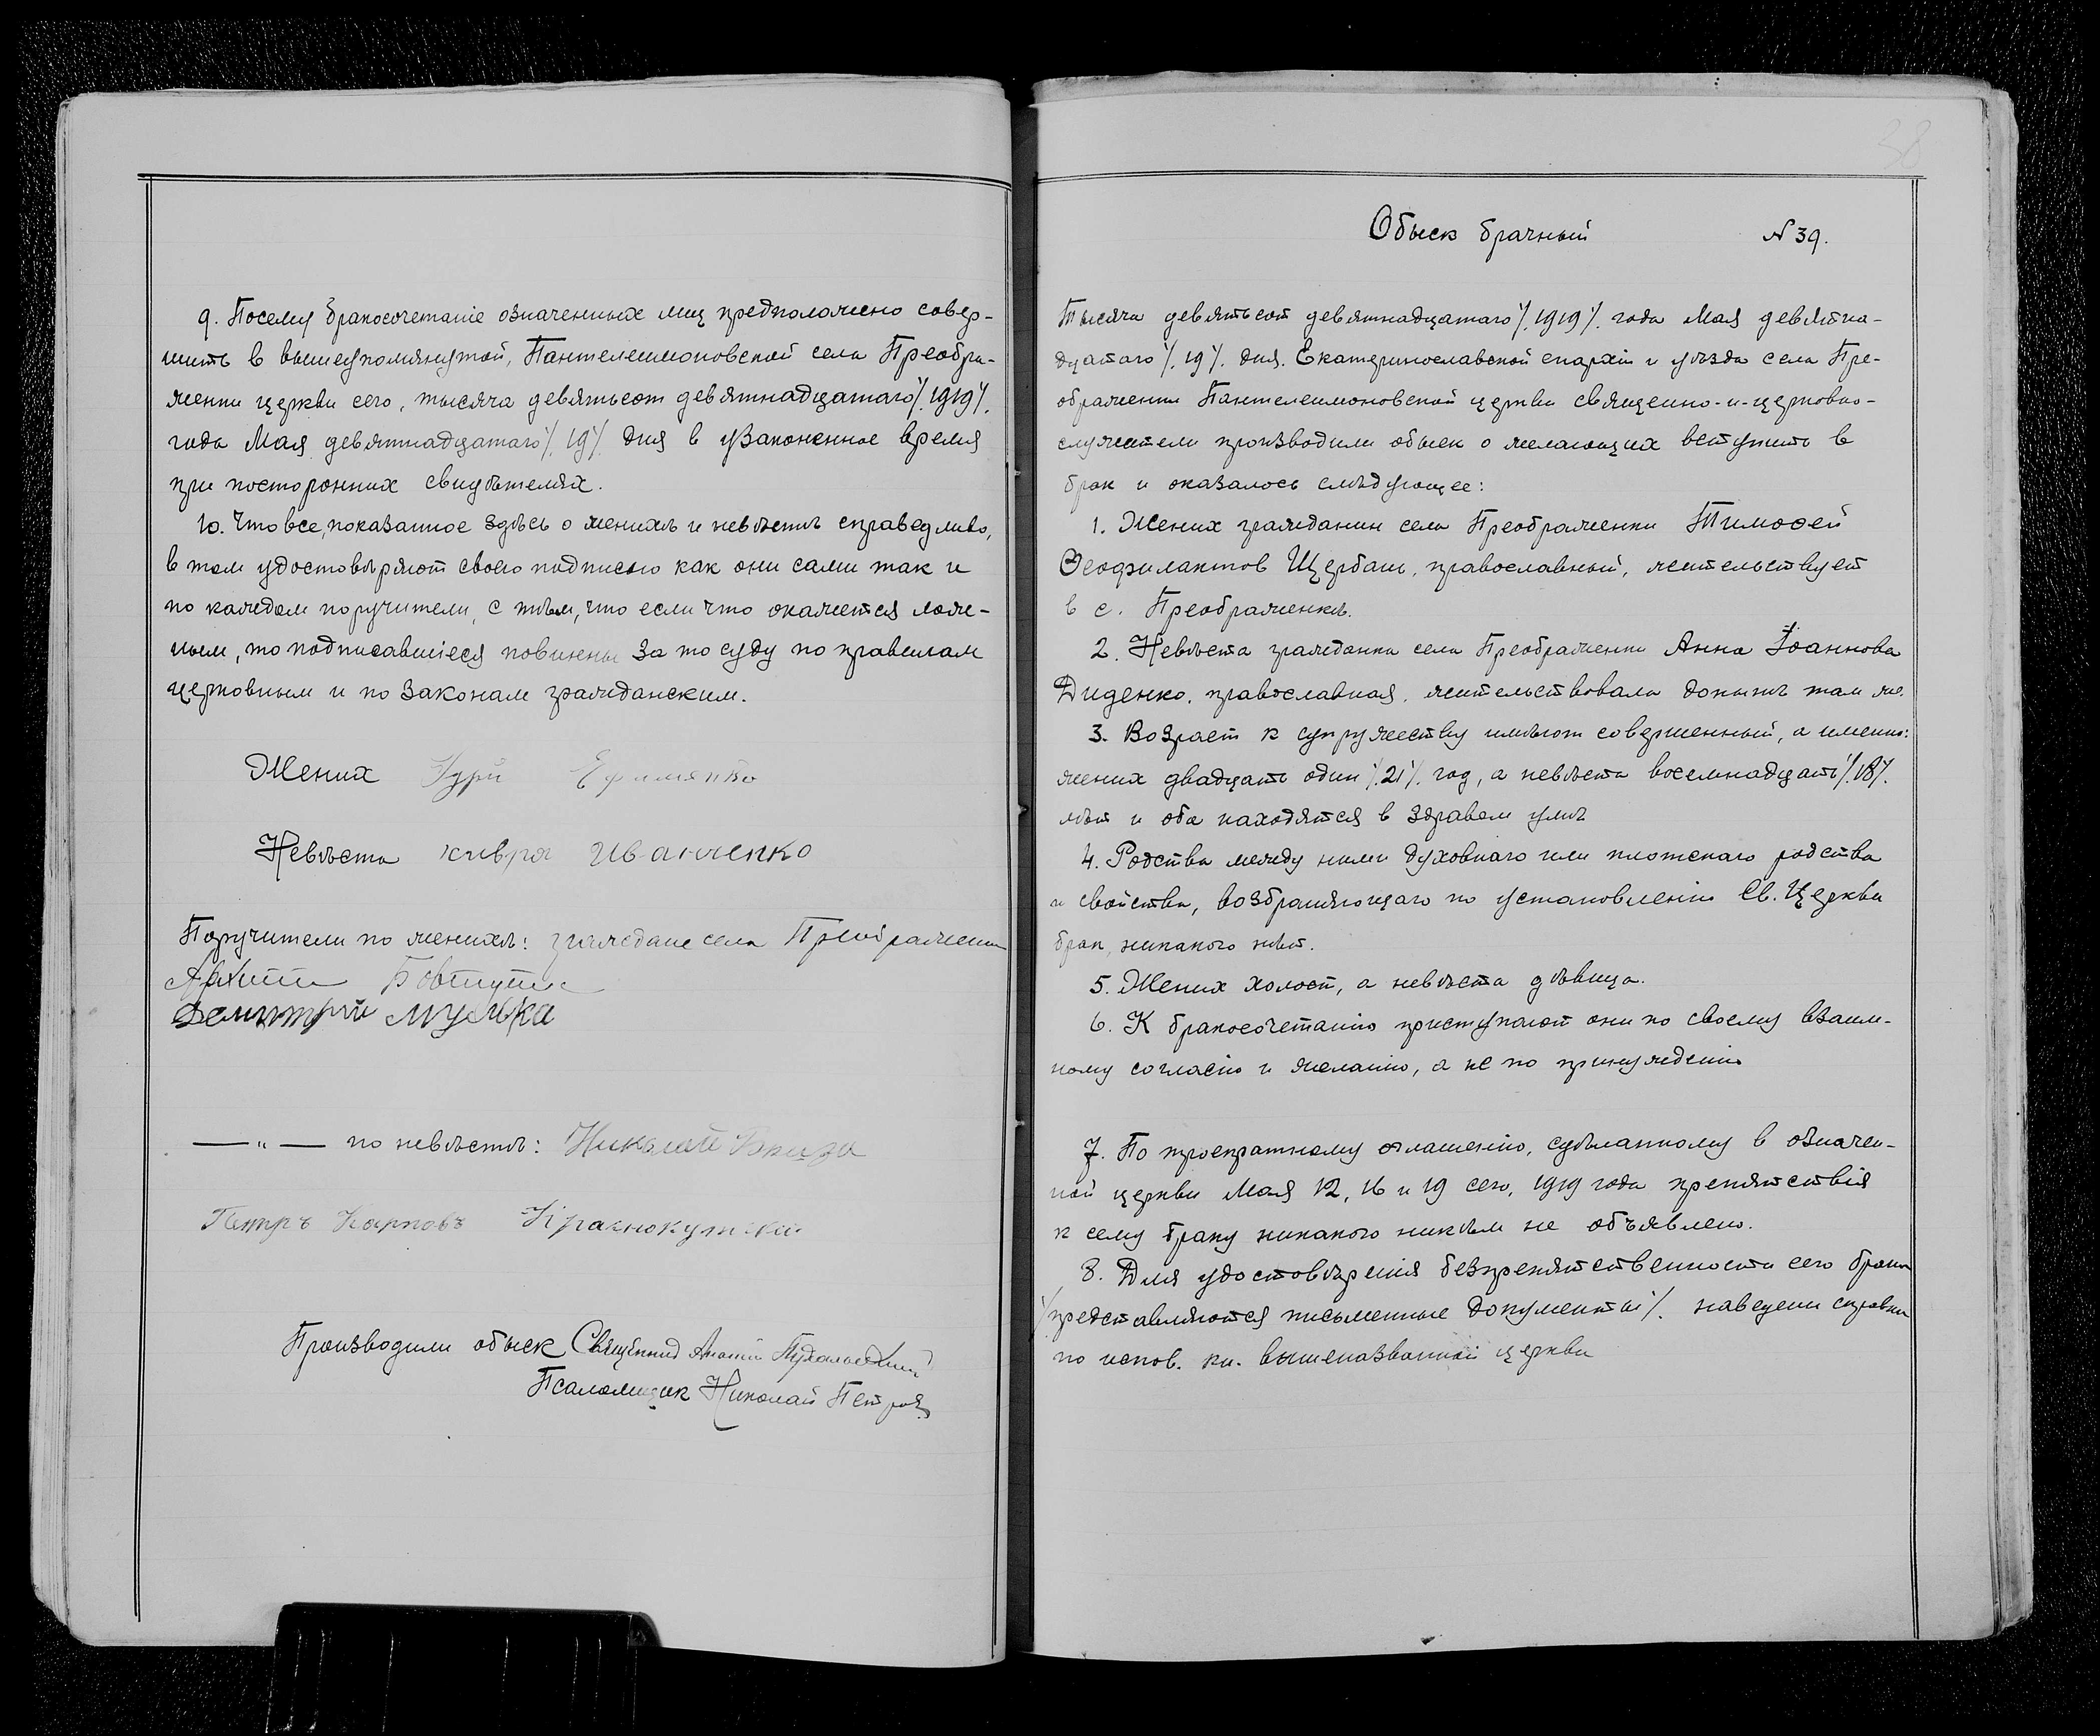 9. Посему бракосочетаніе означенных лиц предположено совер-
шить в вышеупомянутой, Пантелеимоновской села Преобра-
женки церкви сего, тысяча девятьсот девятнадцатаго ⁒ 1919 ⁒
года Мая девятнадцатаго ⁒ 19 ⁒ дня в узаконенное время
при посторонних свидѣтелях.
10. Что все, показанное здѣсь о женихѣ и невѣстѣ справедливо,
в том удостовѣряют своею подписью как они сами так и
по каждом поручители, с тѣм, что если что окажется лож-
ным, то подписавшіеся повинны за то суду по правилам
церковным и по законам гражданским.
Жених
Невѣста Иванченко
Поручители по женихѣ: граждане села Преображенки
Дмитрий
— " — по невѣстѣ: Николай
Петръ Карповъ Краснокутский
Производили обыск Священник
Псаломщик Николай Петров
38
Обыск брачный № 39.
Тысяча девятьсот девятнадцатаго ⁒ 1919 ⁒ года Мая девятна-
дцатаго ⁒ 19 ⁒ дня. Екатеринославской епархіи и уѣзда села Пре-
ображенки Пантелеимоновской церкви священно-и-церковно-
служители производили обыск о желающих вступить в
брак и оказалось слѣдующее:
1. Жених гражданин села Преображенки Тимоѳей
Ѳеофилактов Щербань, православный, жительствует
в с. Преображенкѣ.
2. Невѣста гражданка села Преображенки Анна Іоаннова
Диденко, православная, жительствовала донынѣ там же.
3. Возраст к супружеству имѣют совершенный, а именно:
жених двадцать один ⁒ 21 ⁒ год, а невѣста восемнадцать ⁒ 18 ⁒
лѣт и оба находятся в здравом умѣ
4. Родства между ними духовнаго или плотскаго родства
и свойства, возбраняющаго по установленію Св. Церкви
брак, никакого нѣт.
5. Жених холост, а невѣста дѣвица.
6. К бракосочетанію приступают они по своему взаим-
ному согласію и желанію, а не по принужденію
7. По троекратному оглашенію, сдѣланному в означен-
ной церкви Мая 12, 16 и 19 сего, 1919 года препятствія
к сему браку никакого никѣм не объявлено.
8. Для удостовѣренія безпрепятственности сего брака
⁒ представляются письменные документы ⁒ наведены справки
по испов. кн. вышеназванной церкви